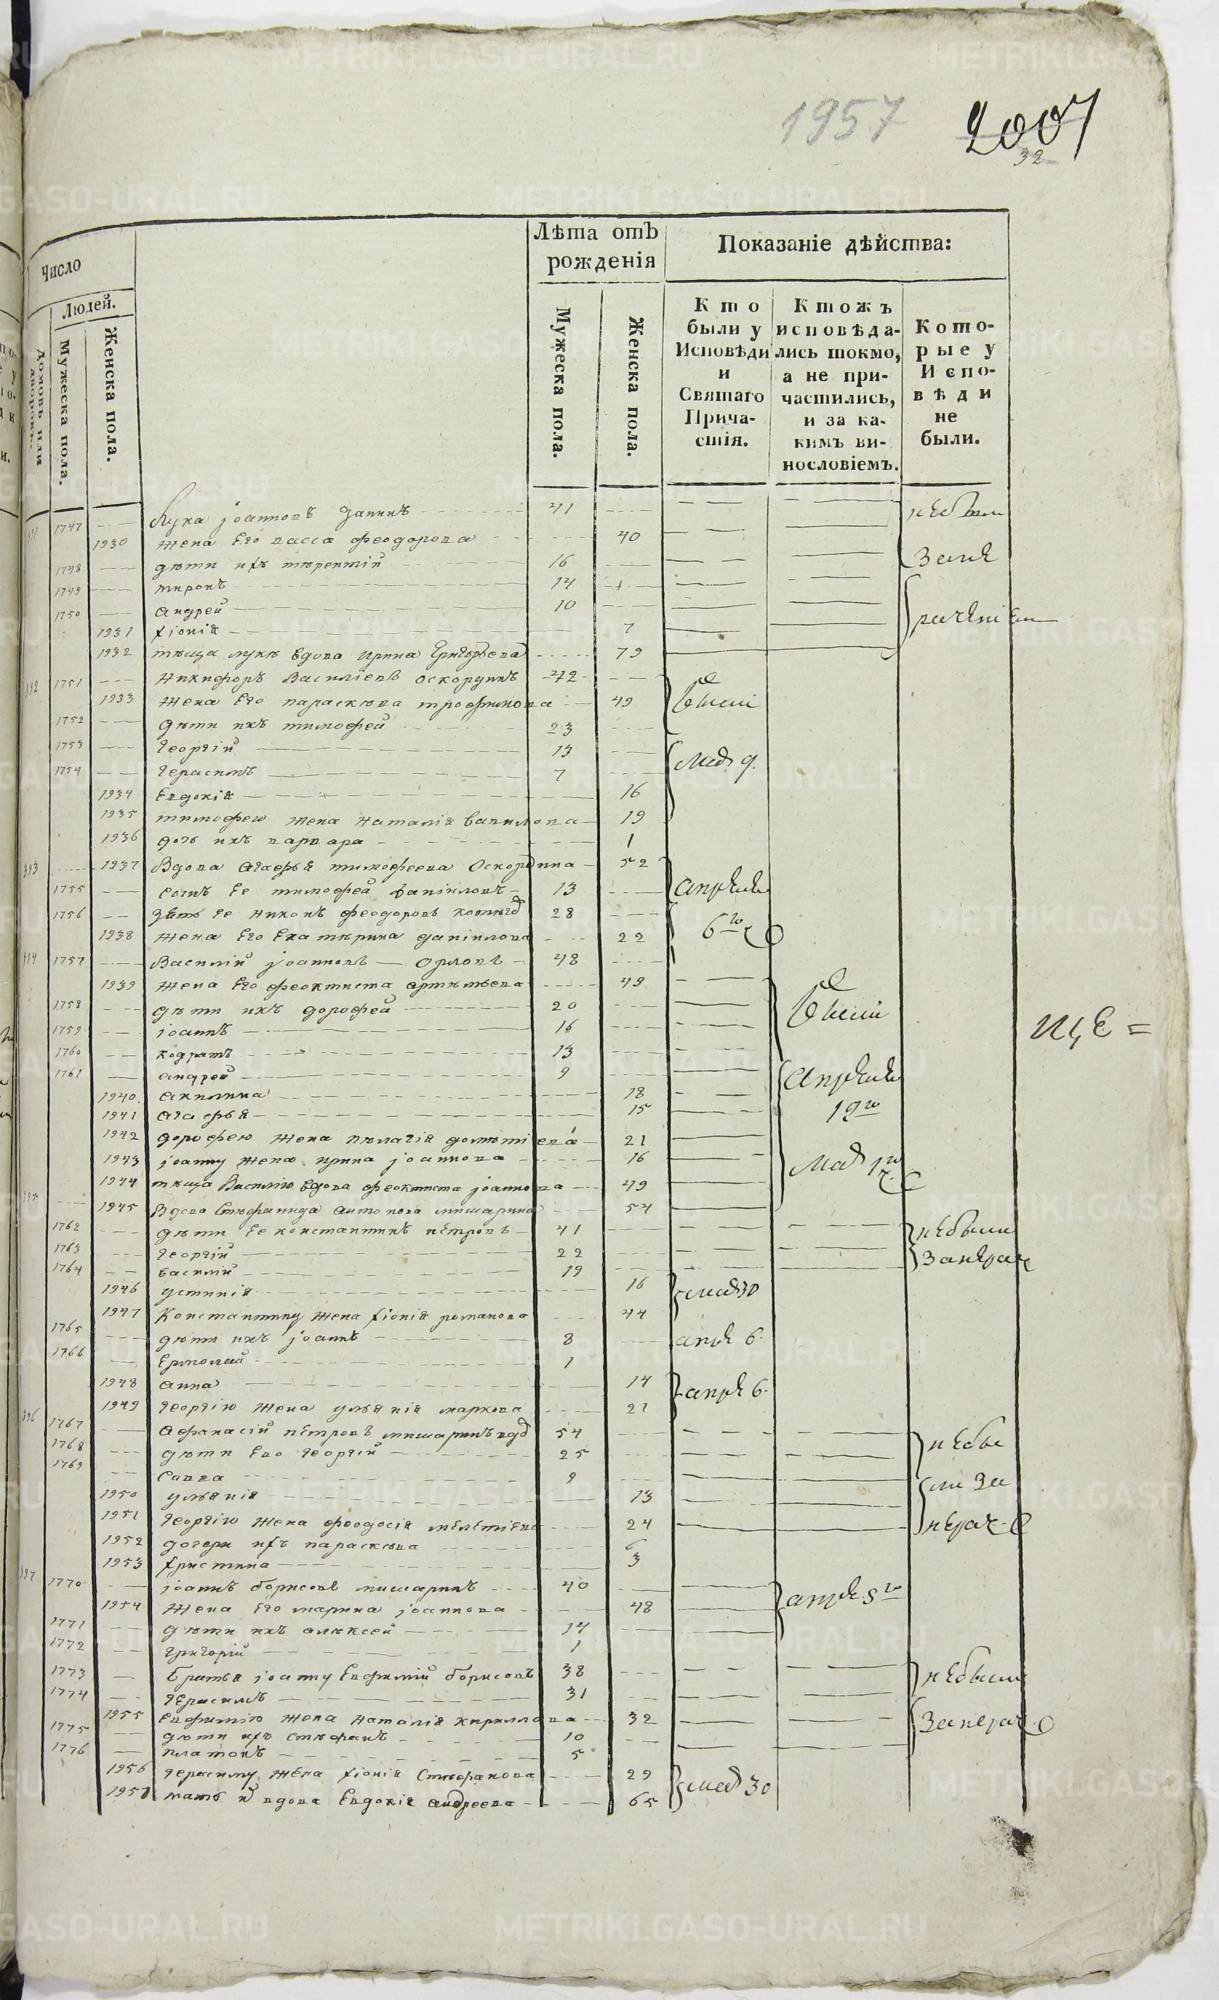 1957 2007
32
Число
Людей.
домовъ или дворовъ.
Мужеска пола.
Женска пола.
Лѣта отъ рожденія
Мужеска пола.
Женска пола.
Показаніе дѣйства:
Кто были у Исповѣди и Святаго Причастія.
Ктожъ исповѣдались токмо, а не причастились, и за какимъ винословіемъ.
Которые у Исповѣди не были.
1747 Лука іоанновъ 41
1930 жена Его васса феодорова 40
1748 дѣти ихъ терентій 16
1749 миронъ 14
1750 андрей 10
1931 хіонія 7
1932 тѣща лукѣ вдова ирина Григорьева 79
1751 Никифоръ Василіевъ оскординъ 42
1933 жена Его параскева трофимова 49
1752 дѣти ихъ тимофей 23
1753 георгій 13
1754 герасимъ 7
1934 Евдокія 16
1935 тимофею жена наталія вавилова 19
1936 дочь ихъ варвара 1
1937 Вдова агафья тимофеева Оскордина 52
1755 сынъ Ее тимофей даніиловъ 13
1756 зять Ее никонъ феодоровъ 28
1938 жена Его Екатерина даніилова 22
1757 Василій іоанновъ орловъ 48
1939 жена Его феоктиста артемьева 49
1758 дѣти ихъ дорофей 20
1759 іоаннъ 16
1760 кодратъ 13
1761 андрей 9
1940 акилина 18
1941 агафья 15
1942 дорофею жена пелагія 21
1943 іоанну жена ирина іоаннова 16
1944 тѣща Василію вдова феоктиста іоаннова 49
1945 Вдова Стефанида антонова мишарина 54
1762 дѣти Ее константинъ петровъ 41
1763 георгій 22
1764 василій 19
1946 устинія 16
1947 Константину жена хіонія романова 44
1765 дѣти ихъ іоаннъ 8
1766 Ермолай 1
1948 анна 14
1949 георгію жена ульянія маркова 21
1767 афанасій петровъ мишаринъ 54
1768 дѣти Его георгій 25
1769 савва 9
1950 ульянія 13
1951 георгію жена феодосія мелетіева 24
1952 дочери ихъ параскева 6
1953 христина 3
1770 іоаннъ борисовъ мишаринъ 40
1954 жена Его марина іоаннова 48
1771 дѣти ихъ алексей 14
1772 григорій 1
1773 братья іоанну Евфимій борисовъ 38
1774 герасимъ 31
1955 Евфимію жена наталія кириллова 32
1775 дѣти ихъ стефанъ 10
1776 платонъ 5
1956 герасиму жена хіонія Стефанова 29
1957 мать ихъ вдова Евдокія андреева 65
небыли
за не
рачением
были
мая 9
апреля
6го
были
апреля
19го
мая 1го
небыли
за нерач
мая 30
апре 6
апре 6
небы
ли за
нерач
апре 5го
небыли
за нерач
мая 30